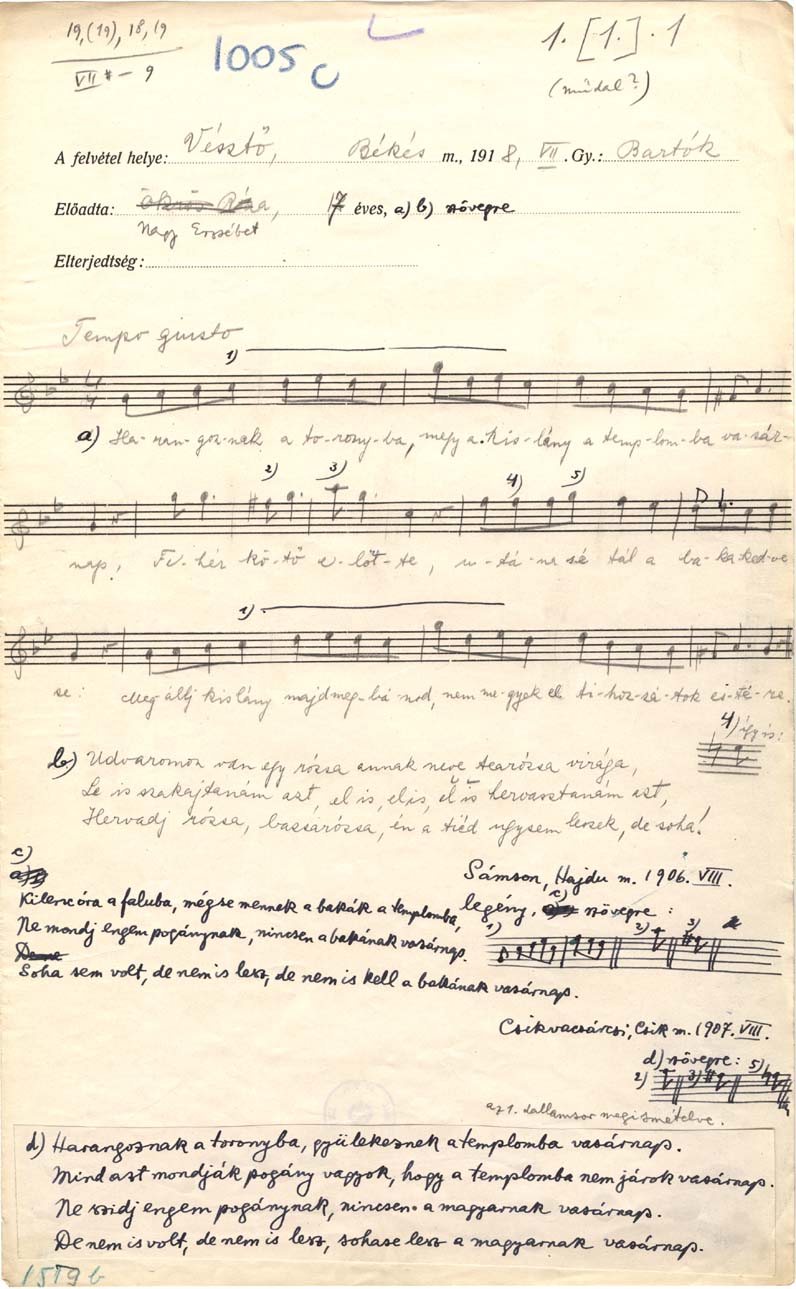 19,(19), 18, 19
VII # – 9
1005 c
1. [1.] . 1
(műdal?)
A felvétel helye: Vésztő, Békés m., 1918, VII. Gy.: Bartók
Előadta: Ökrös Róza, 17 éves, a) b) szövegre
Nagy Erzsébet
Elterjedtség:
Tempo giusto
1)
a) Ha-ran-goz-nak a to-rony-ba, megy a kis-lány a temp-lom-ba va-sár-
2) 3) 4) 5)
nap, Fe-hér kö-tő e-lőt-te, u-tá-na sé tál a ba-ka ked-ve
1)
se: Meg állj kislány majd meg-bá-nod, nem me-gyek el ti-hoz-zá-tok es-té-re.
4) így is:
b) Udvaromon van egy rózsa annak neve tearózsa virága,
Le is szakajtanám azt, el is, el is, el is hervasztanám azt,
Hervadj rózsa, bazsarózsa, én a tiéd úgysem leszek, de soha!
c)
Kilenc óra a faluba, mégse mennek a bakák a templomba,
Ne mondj engem pogánynak, nincsen a bakának vasárnap.
Soha sem volt, de nem is lesz, de nem is kell a bakának vasárnap.
Sámson, Hajdu m. 1906. VIII.
legény, c) szövegre:
1) 2) 3)
Csikvacsárcsi, Csik m. 1907. VIII.
d) szövegre:
2) 3) 5)
az 1. dallamsor megismételve.
d) Harangoznak a toronyba, gyülekeznek a templomba vasárnap.
Mind azt mondják pogány vagyok, hogy a templomba nem járok vasárnap.
Ne szidj engem pogánynak, nincsen a magyarnak vasárnap.
De nem is volt, de nem is lesz, sohase lesz a magyarnak vasárnap.
1519 b